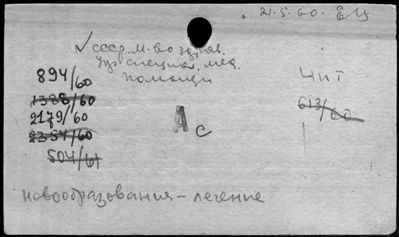 21.5.60. ЕЦ
✓ СССР. М-во здрав.
Упр специал. мед.
помощи
894/60
1388/60
2179/60
2354/60
504/61
ЧИТ
613/60
А с
новообразования – лечение